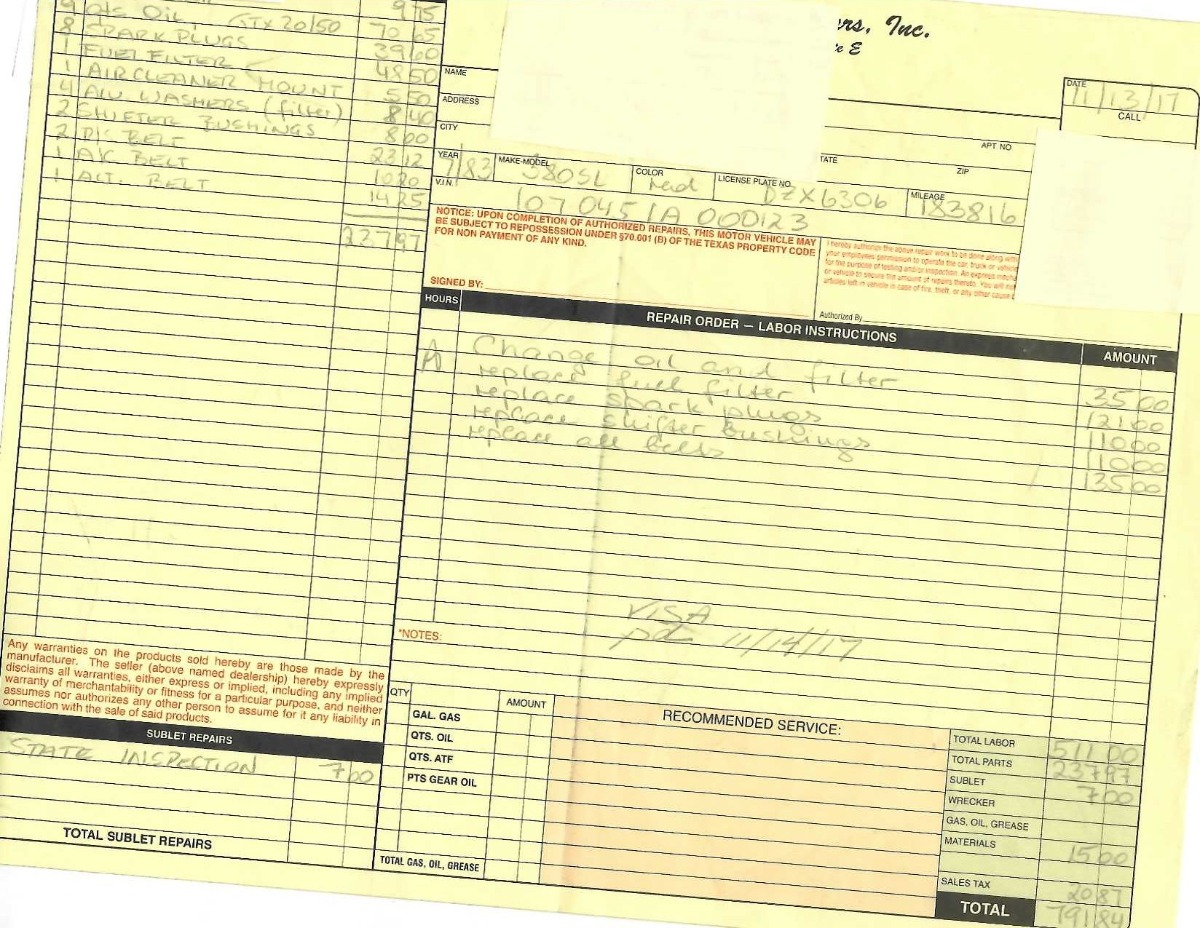 9 75
9 qts Oil, GTX 20/50 70 65
8 SPARK PLUGS 39 60
1 FUEL FILTER 48 50
1 AIR CLEANER MOUNT 5 50
4 ALU. WASHERS (filter) 8 40
2 SHIFTER BUSHINGS 8 00
2 P/S BELT 23 12
1 A/C BELT 10 20
1 ALT. BELT 14 25
237 97
ers, Inc.
te E
NAME
ADDRESS
CITY
TATE
APT NO
ZIP
DATE 11/13/17
CALL
YEAR 7/83 MAKE-MODEL 380SL COLOR Red LICENSE PLATE NO. DZX6306 MILEAGE 183816
V.I.N. 107 045 1A 000123
NOTICE: UPON COMPLETION OF AUTHORIZED REPAIRS, THIS MOTOR VEHICLE MAY
BE SUBJECT TO REPOSSESSION UNDER §70.001 (B) OF THE TEXAS PROPERTY CODE
FOR NON PAYMENT OF ANY KIND.
SIGNED BY:
I hereby authorize the above repair work to be done along with
your employees permission to operate the car, truck or vehicle
for the purpose of testing and/or inspection. An express mecha
or vehicle to secure the amount of repairs thereto. You will not
articles left in vehicle in case of fire, theft, or any other cause
Authorized By
HOURS REPAIR ORDER — LABOR INSTRUCTIONS AMOUNT
A Change oil and filter 35 00
A replace fuel filter 121 00
replace spark plugs 110 00
replace shifter bushings 110 00
replace all belts 135 00
VISA
pd 11/14/17
*NOTES:
Any warranties on the products sold hereby are those made by the
manufacturer. The seller (above named dealership) hereby expressly
disclaims all warranties, either express or implied, including any implied
warranty of merchantability or fitness for a particular purpose, and neither
assumes nor authorizes any other person to assume for it any liability in
connection with the sale of said products.
SUBLET REPAIRS
STATE INSPECTION 7 00
TOTAL SUBLET REPAIRS
QTY AMOUNT
GAL. GAS
QTS. OIL
QTS. ATF
PTS GEAR OIL
TOTAL GAS, OIL, GREASE
RECOMMENDED SERVICE:
TOTAL LABOR 511 00
TOTAL PARTS 237 97
SUBLET 7 00
WRECKER
GAS, OIL, GREASE
MATERIALS 15 00
SALES TAX 20 87
TOTAL 791 84